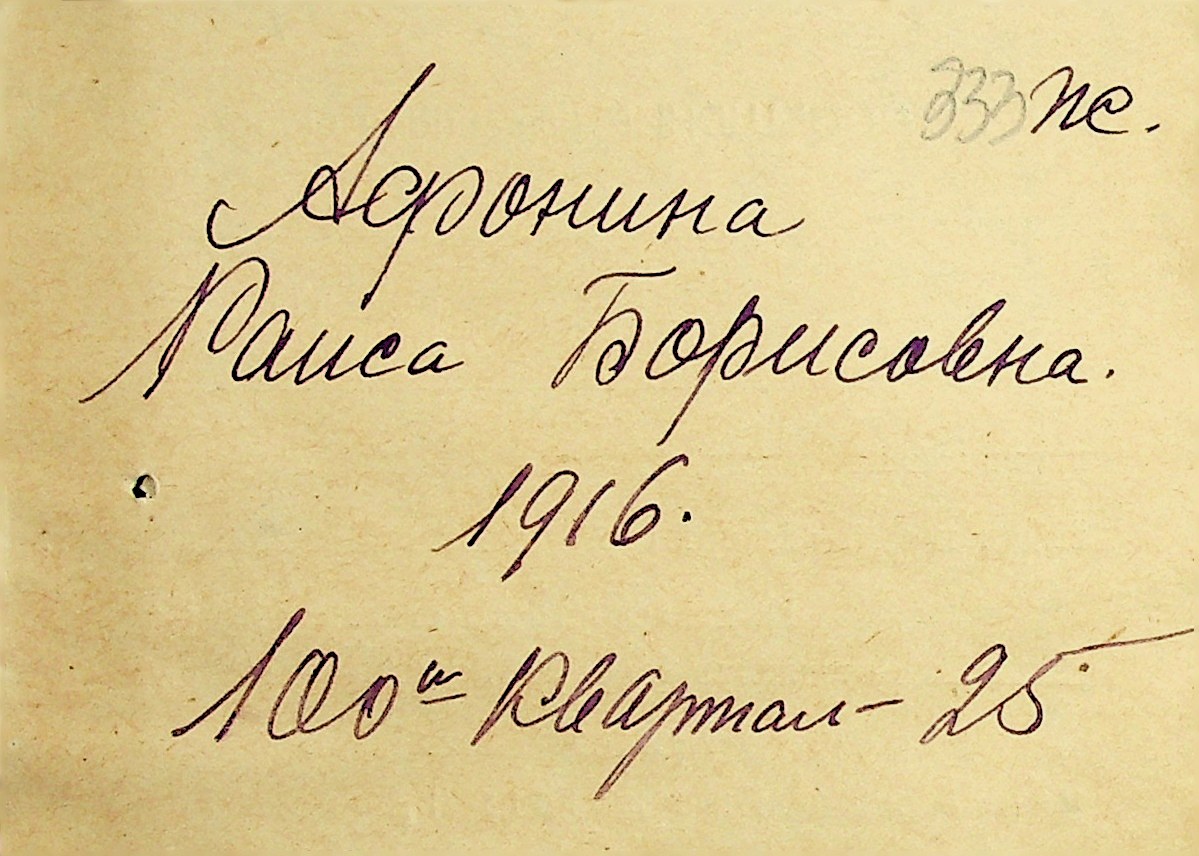 333 Ж.
Афронина
Раиса Борисовна.
1916.
100й квартал - 25